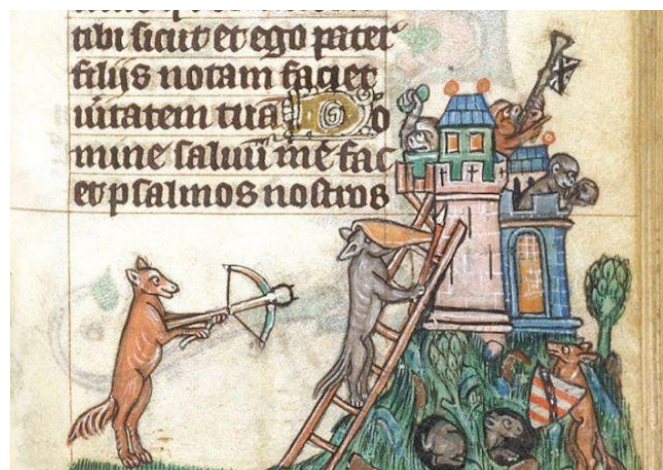 tibi sicut et ego pater
filijs notam faciet
uitatem tuā Do
mine saluū me fac
et psalmos nostros